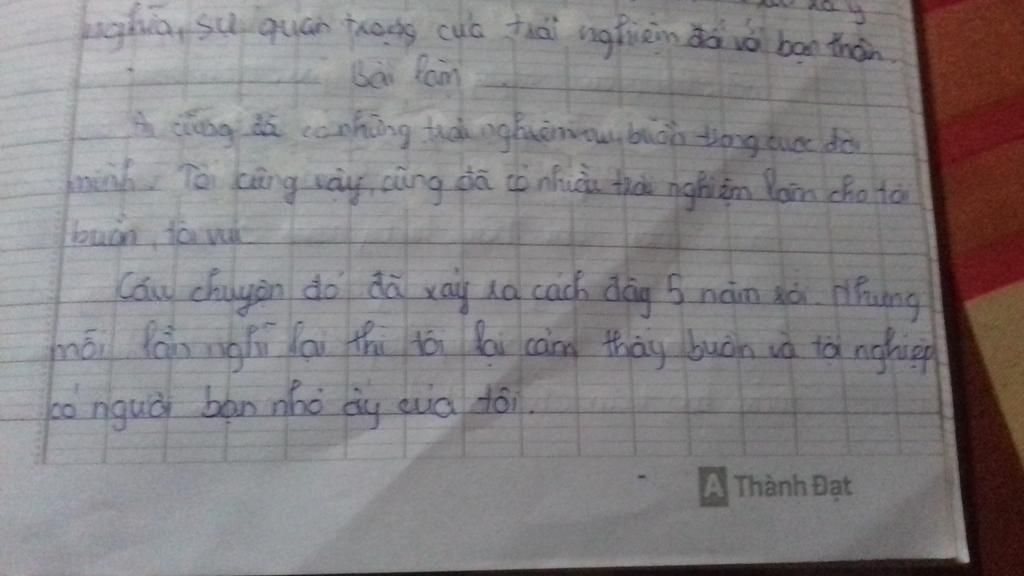 nghĩa, sự quan trọng của trải nghiệm đó với bạn thân.
Bài làm
cũng đã có những trải nghiệm vui, buồn trong cuộc đời
mình. Tôi cũng vậy, cũng đã có nhiều trải nghiệm làm cho tôi
buồn, tôi vui
Câu chuyện đó đã xảy ra cách đây 5 năm rồi. Nhưng
mỗi lần nghĩ lại thì tôi lại cảm thấy buồn và tội nghiệp
cô người bạn nhỏ ấy của tôi.
A Thành Đạt